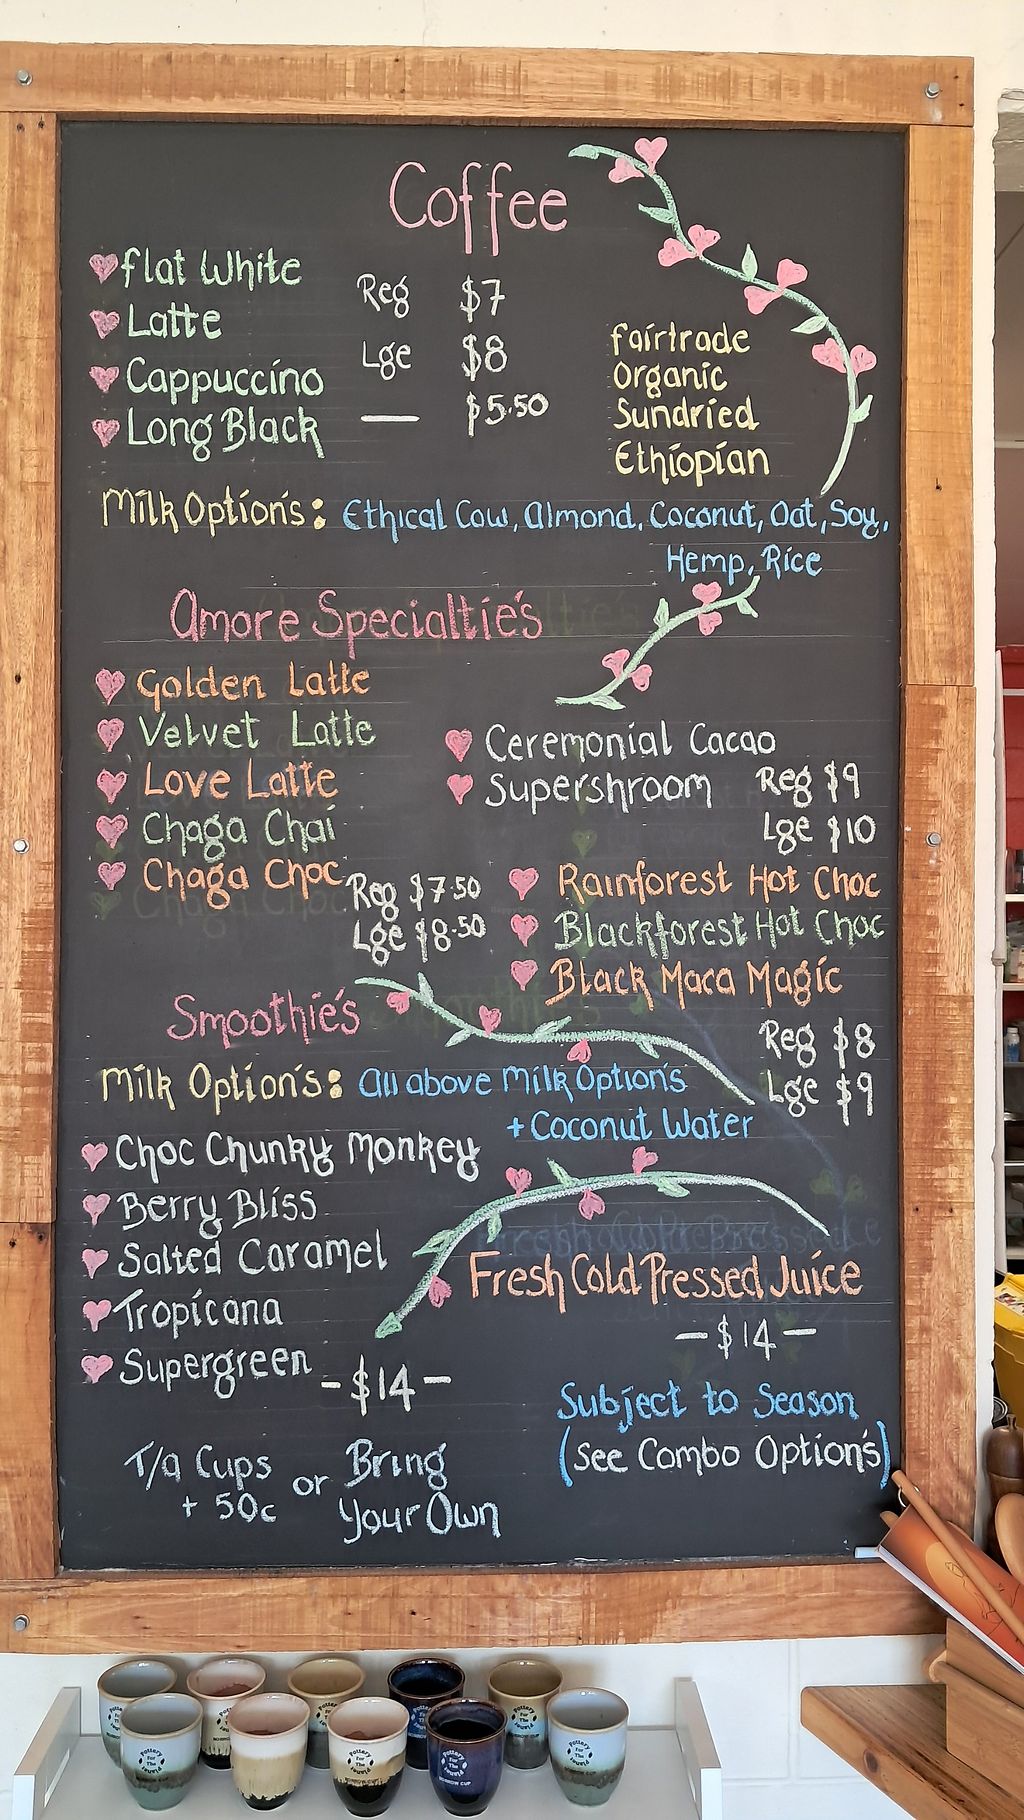 Coffee
flat White
Latte
Cappuccino
Long Black
Reg $7
Lge $8
— $5.50
fairtrade
Organic
Sundried
Ethiopian
Milk Option's: Ethical Cow, Almond, Coconut, Oat, Soy,
Hemp, Rice
Amore Specialtie's
Golden Latte
Velvet Latte
Love Latte
Chaga Chai
Chaga Choc
Reg $7.50
Lge $8.50
Ceremonial Cacao
Supershroom
Reg $9
Lge $10
Rainforest Hot Choc
Blackforest Hot Choc
Black Maca Magic
Reg $8
Lge $9
Smoothie's
Milk Option's: All above Milk Option's
+ Coconut Water
Choc Chunky Monkey
Berry Bliss
Salted Caramel
Tropicana
Supergreen
- $14 -
Fresh Cold Pressed Juice
- $14 -
Subject to Season
(see Combo Option's)
T/a Cups
+ 50c
or
Bring
Your Own
Pottery
For
The
BORROW CUP